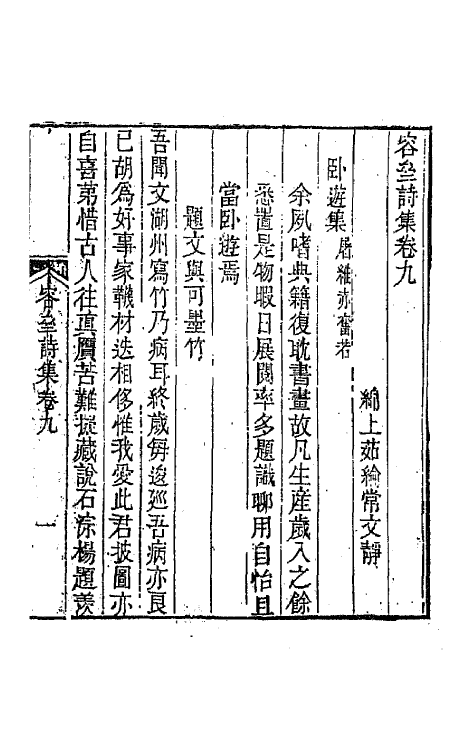 容齋詩集卷九
綿上茹綸常文靜
卧遊集 屠維赤奮若
余夙嗜典籍復耽書畫故凡生產歲入之餘
悉置是物暇日展閱率多題識聊用自怡且
當卧遊焉
題文與可墨竹
吾聞文湖州寫竹乃病耳終歲每逡廵吾病亦良
已胡爲好事家韈材迭相侈惟我愛此君披圖亦
自喜苐惜古人往眞贋苦難擬藏說石淙楊題羨
容齋詩集卷九 一